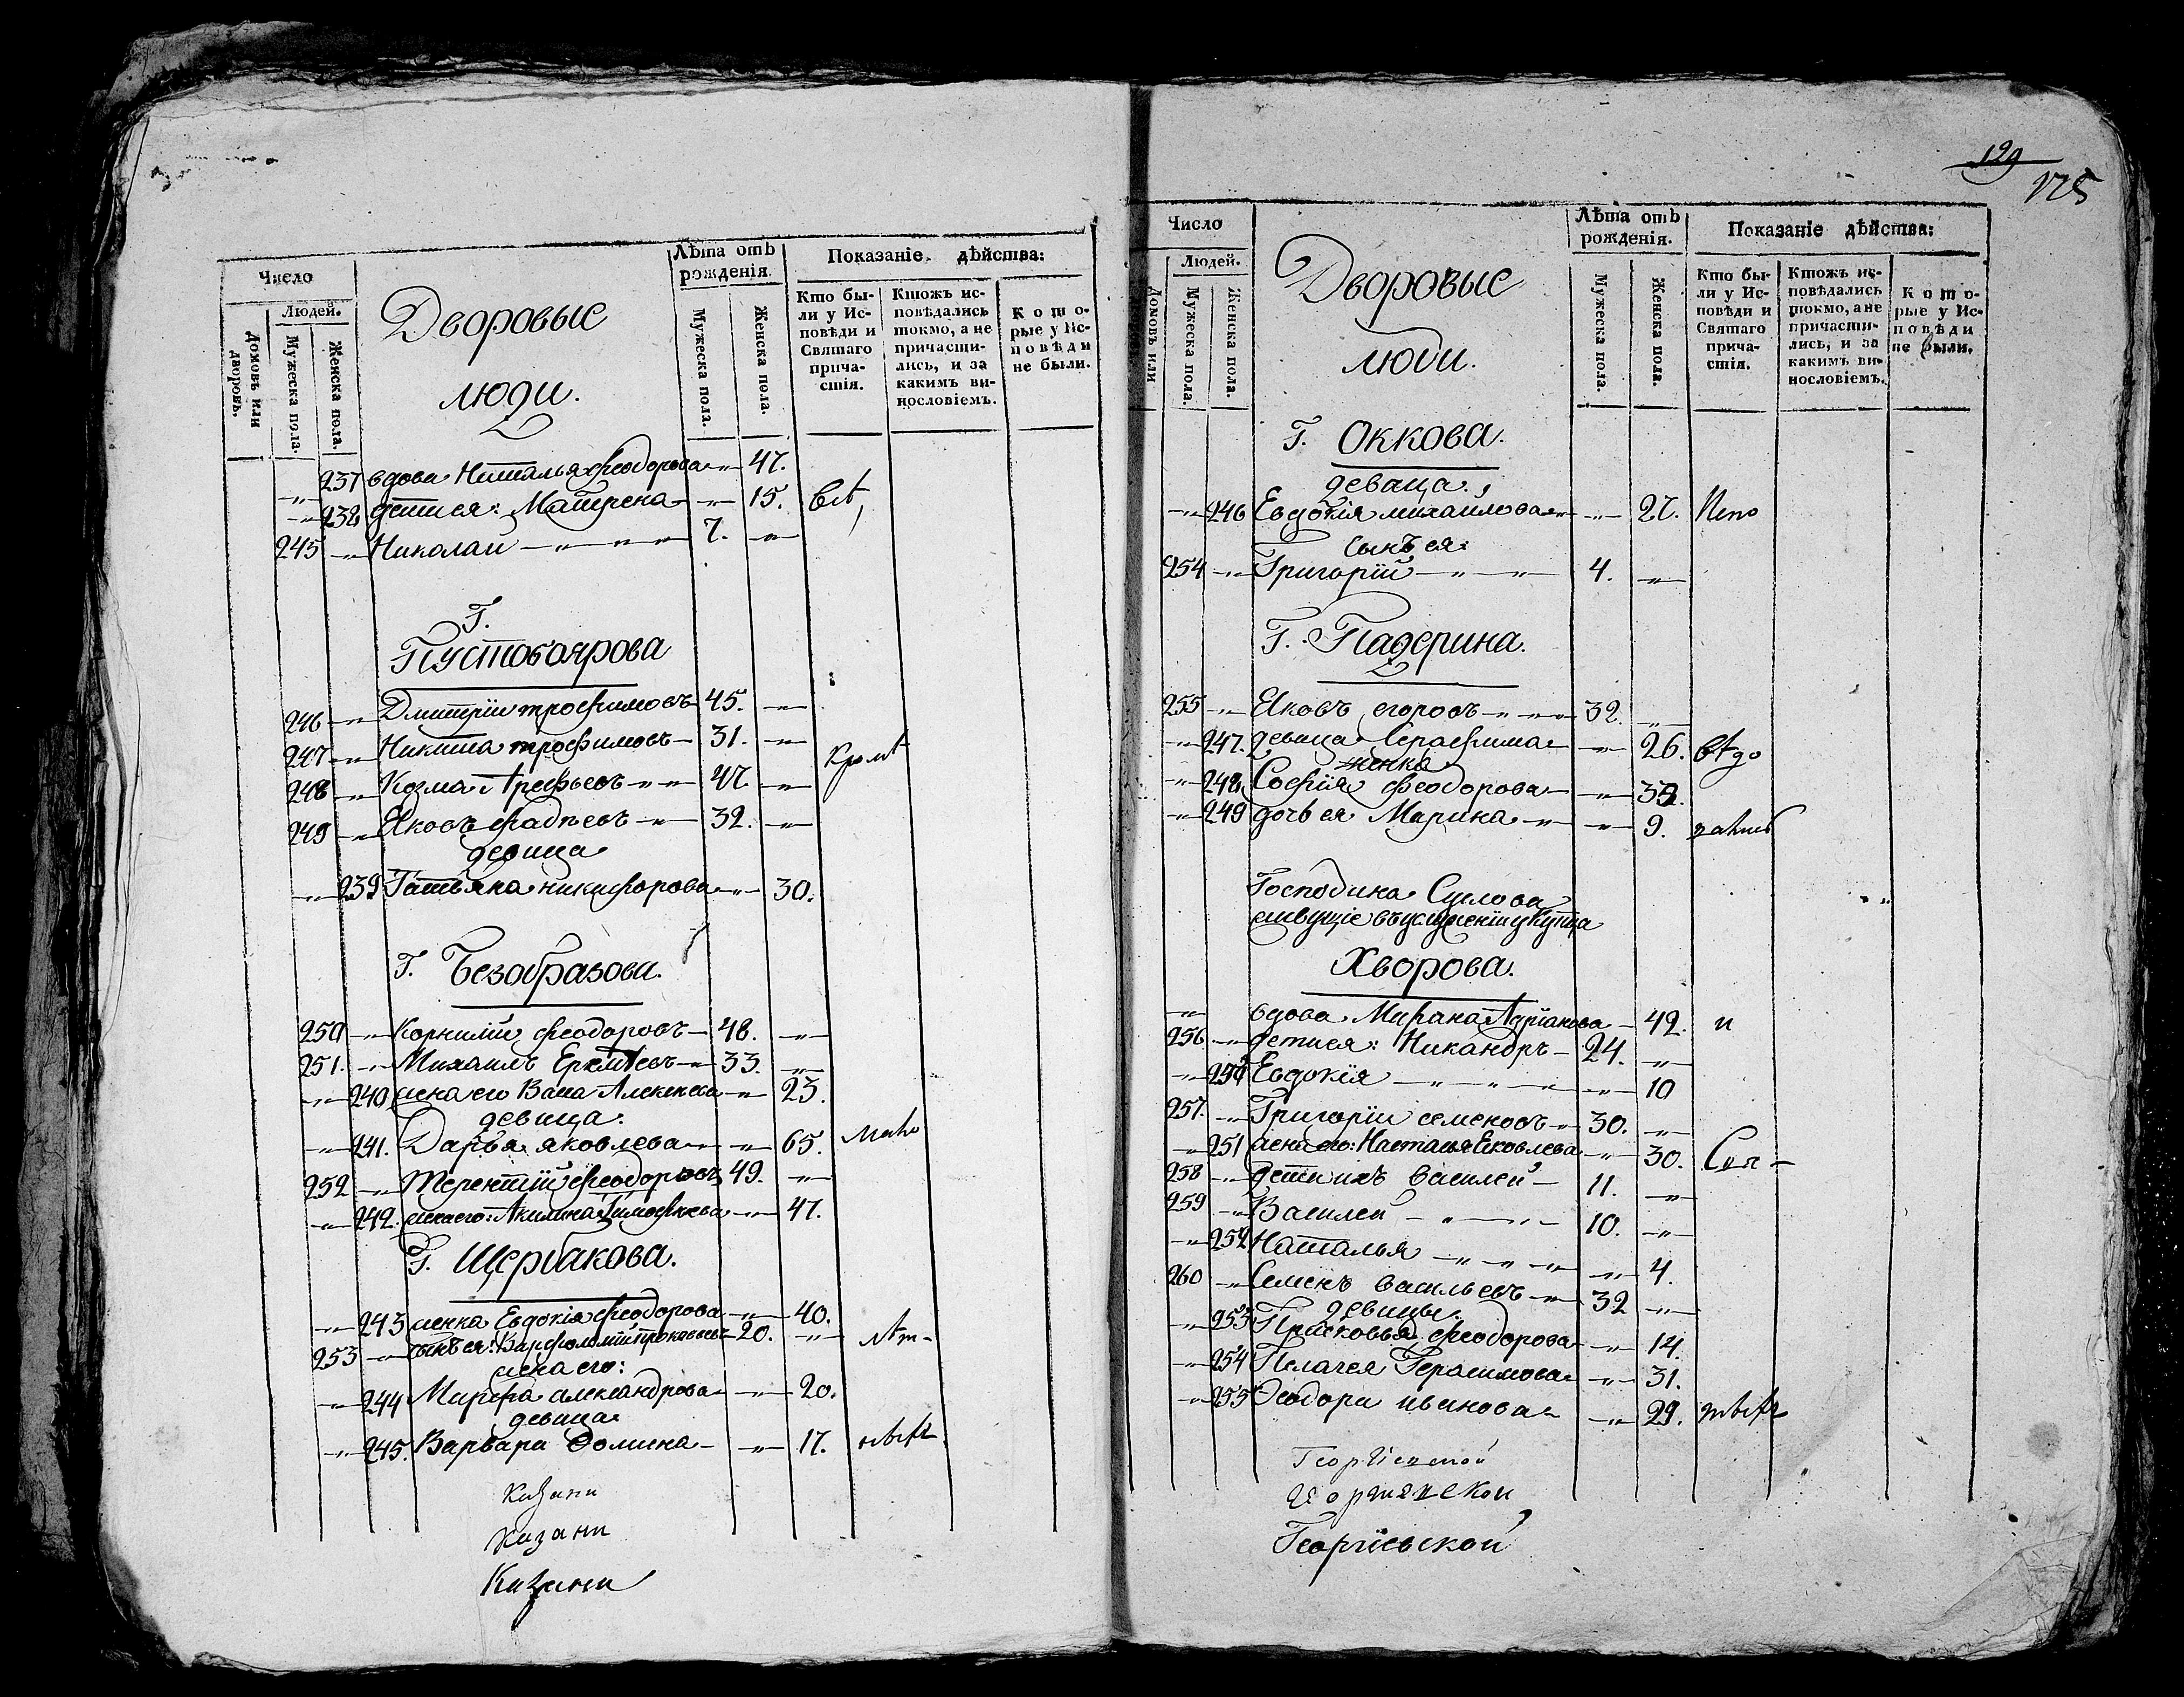 Число
Людей.
Домовъ или дворовъ.
Мужеска пола.
Женска пола.
Дворовые
люди.
Лѣта отъ рожденія.
Мужеска пола.
Женска пола.
Показаніе дѣйства:
Кто были у Исповѣди и Святаго причастія.
Ктожъ исповѣдались токмо, а не причастились, и за какимъ винословіемъ.
Которые у Исповѣди не были.
237 вдова Наталья Феодорова 47.
238 дети ея: Матрена 15. всѣ
245 Николай 7.
Г.
Пустобоярова
246 Дмитрій трофимовъ 45.
247 Никита трофимовъ 31.
248 Козма Арефьевъ 47 кромѣ
249 Яковъ фадѣевъ 32.
девица
239 Татьяна никифорова 30.
Г. Безобразова.
250 Корнилій феодоровъ 48.
251. Михаилъ Еремѣевъ 33.
240 жена его Васа Алексеева 23.
девица:
241. Дарья яковлева 65. мало
252 Терентій феодоровъ 49.
242. жена его: Акилина Тимофеева 47.
Г. Щербакова.
243 женка Евдокія феодорова 40.
253 сынъ ея: Варфоломѣй 20. лѣт-
жена его:
244 Марфа александрова 20.
девица
245. Варвара Фомина 17. ныхъ
Казани
Казани
Казани
129
175
Число
Людей.
Домовъ или
Мужеска пола.
Женска пола.
Дворовые
люди.
Лѣта отъ рожденія.
Мужеска пола.
Женска пола.
Показаніе дѣйства:
Кто были у Исповѣди и Святаго причастія.
Ктожъ исповѣдались токмо, а не причастились, и за какимъ винословіемъ.
Которые у Исповѣди не были.
Г. Оккова.
девица:
246 Евдокія михаилова 27. Испо
сынъ ея:
254 Григорій 4.
Г. Падерина.
255 Яковъ егоровъ 32.
247. девица Серафима 26. вѣда
женка
248 Софія феодорова
249 дочь ея Марина 9.
Господина Суслова
живущіе въ услуженіи у Купца
Хворова.
вдова Марана Адріанова 42. и
256 дети ея: Никандръ 24.
250 Евдокія 10
257. Григорій семеновъ 30.
251 жена его: Настасья Яковлева 30. Соп-
258 дети ихъ василей 11.
259 Василей 10.
252 Наталья 4.
260 Семенъ васильевъ 32
девицы:
253 Прасковья феодорова 14.
254 Пелагея Герасимова 31.
255 Феодора иванова 29.
Георгіевской
Георгіевской
Георгіевской